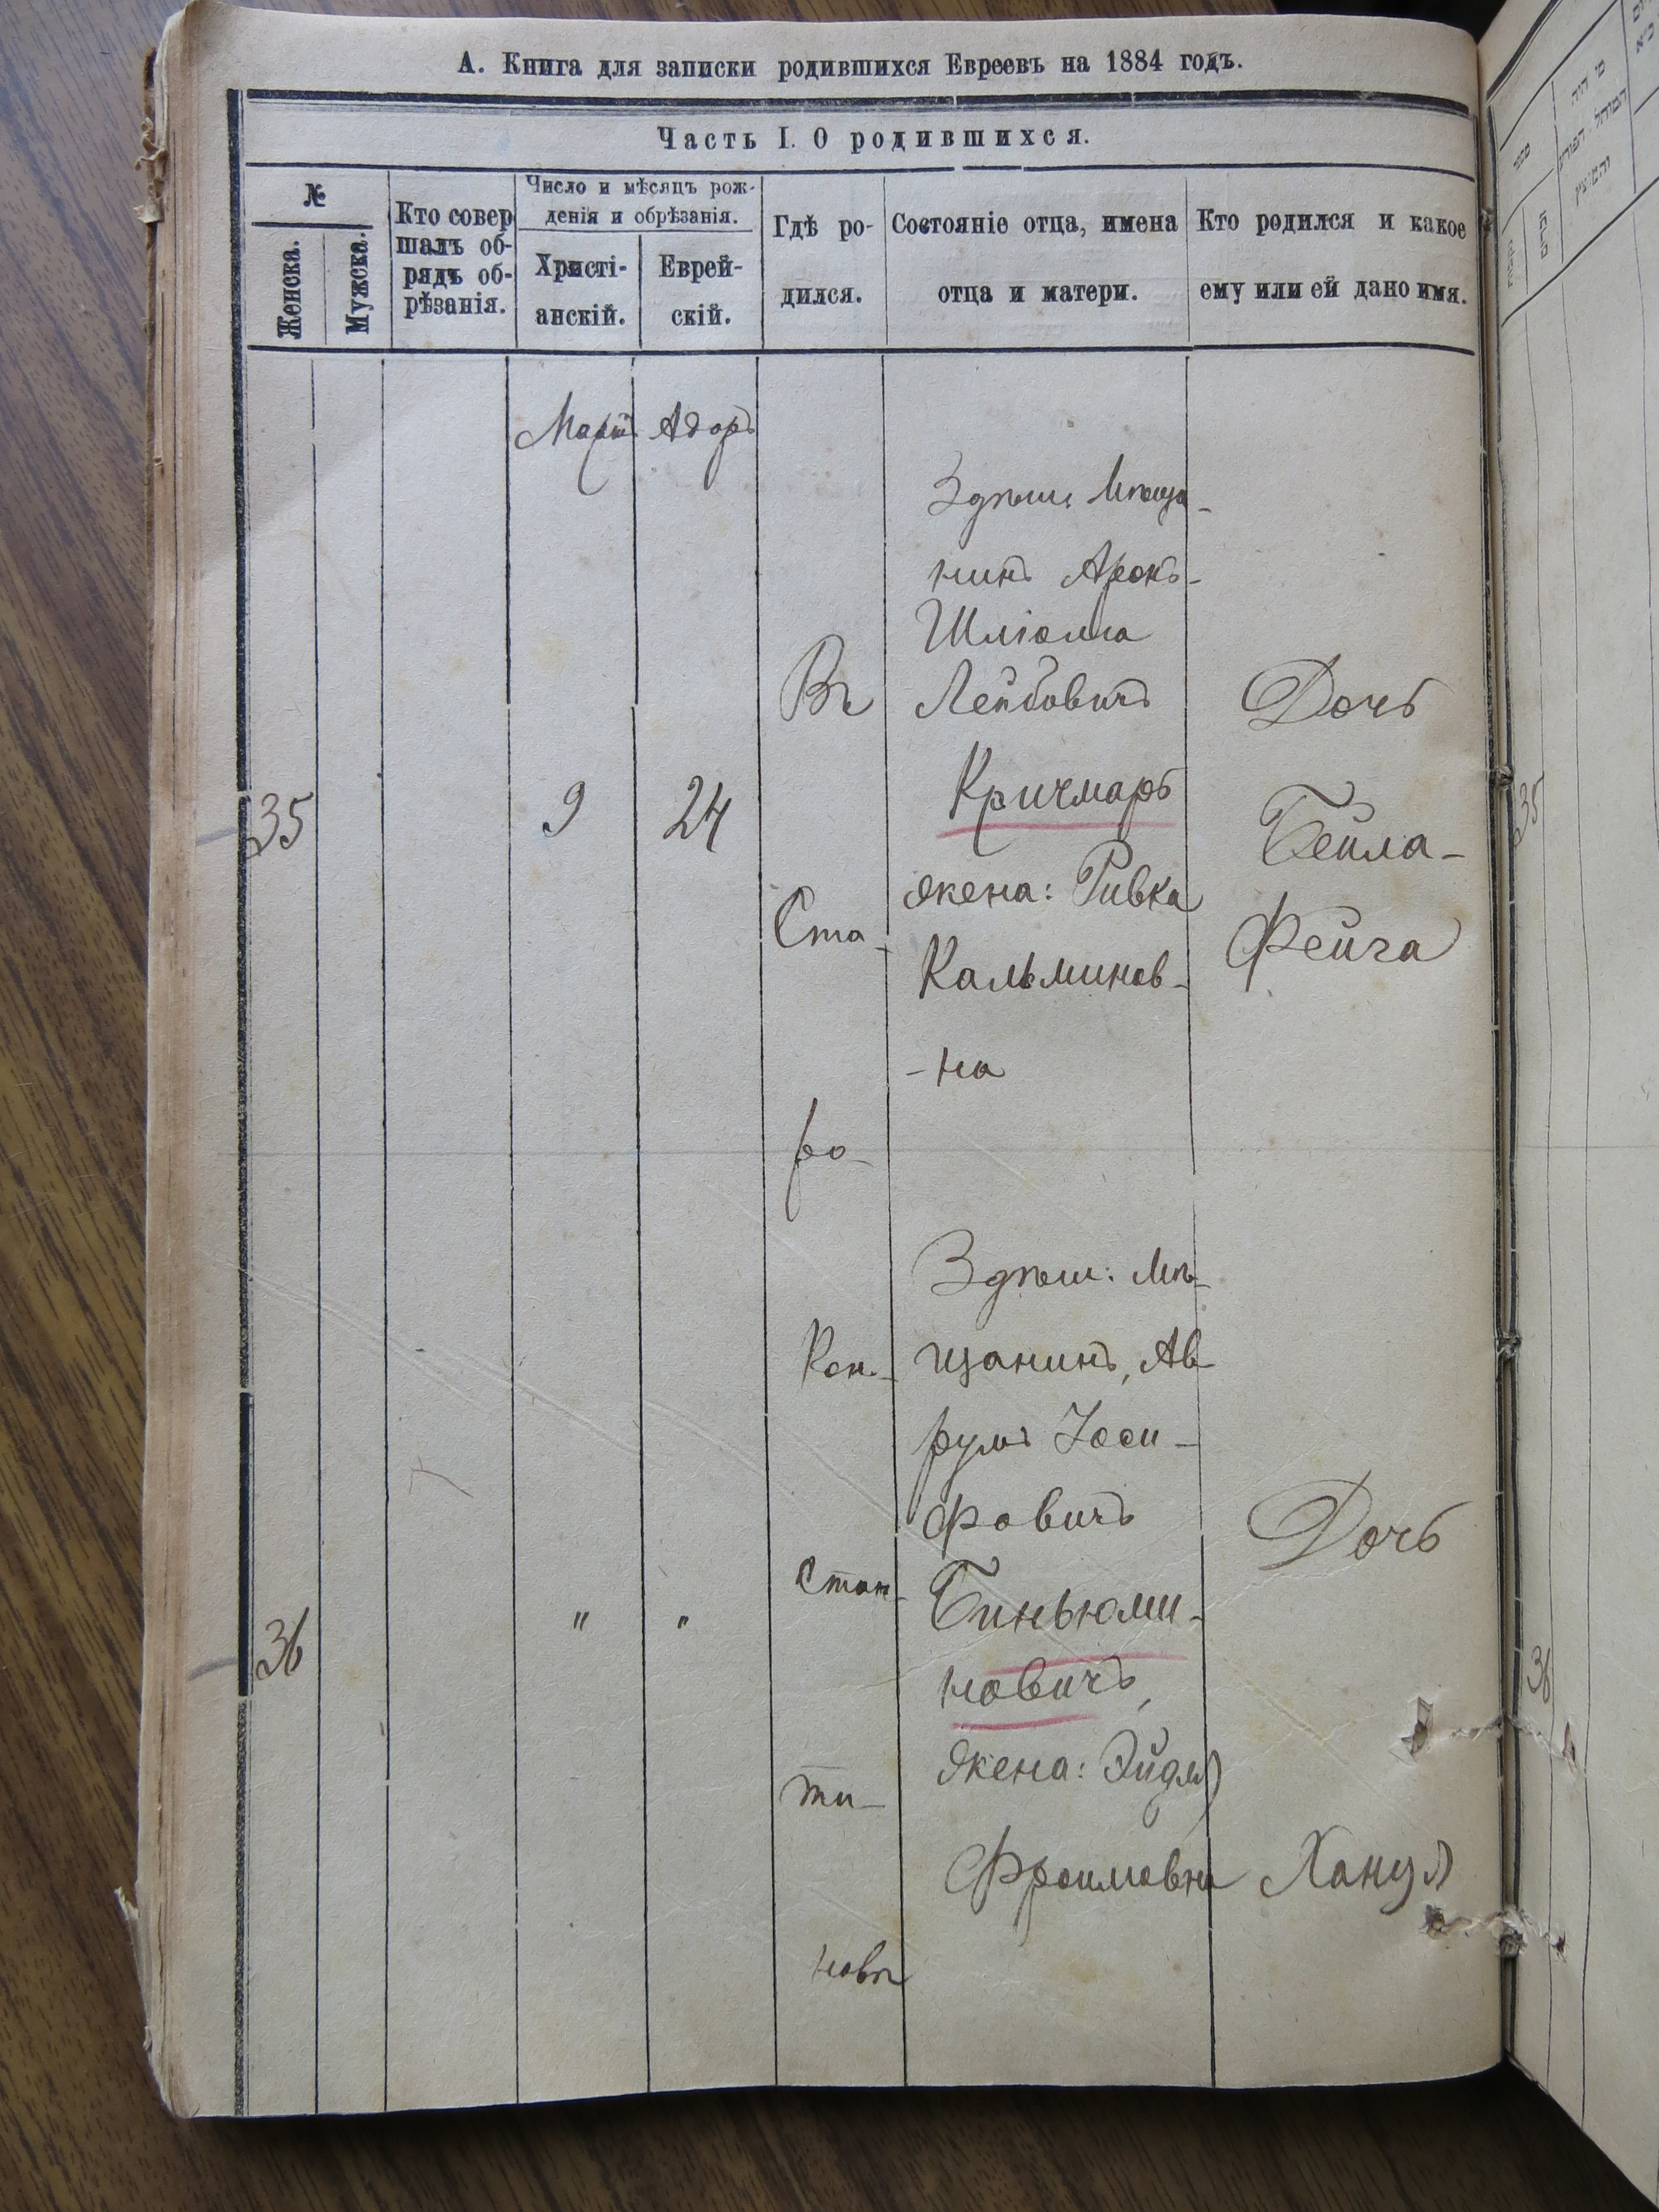 А. Книга для записки родившихся Евреевъ на 1884 годъ.
Часть I. О родившихся.
№
Женска.
Мужска.
Кто совер
шалъ об-
рядъ об-
рѣзанія.
Число и мѣсяцъ рож-
денія и обрѣзанія.
Христі-
анскій.
Еврей-
скій.
Гдѣ ро-
дился.
Состояніе отца, имена
отца и матери.
Кто родился и какое
ему или ей дано имя.
Мартъ
Адоръ
35
9
24
Въ
Ста-
ро-
Кон-
стан-
ти-
новѣ
Здѣш: Мѣща-
нинъ Аронъ-
Шліома
Лейбовичъ
Кричмаръ
жена: Ривка
Кальминов-
-на
Дочь
Бейла-
Фейга
36
"
"
Здѣш: Мѣ-
щанинъ, Ав-
румъ Іоси-
фовичъ
Биньюми-
новичъ,
жена: Эйдля
Фроимовна
Дочь
Ханця
35
36